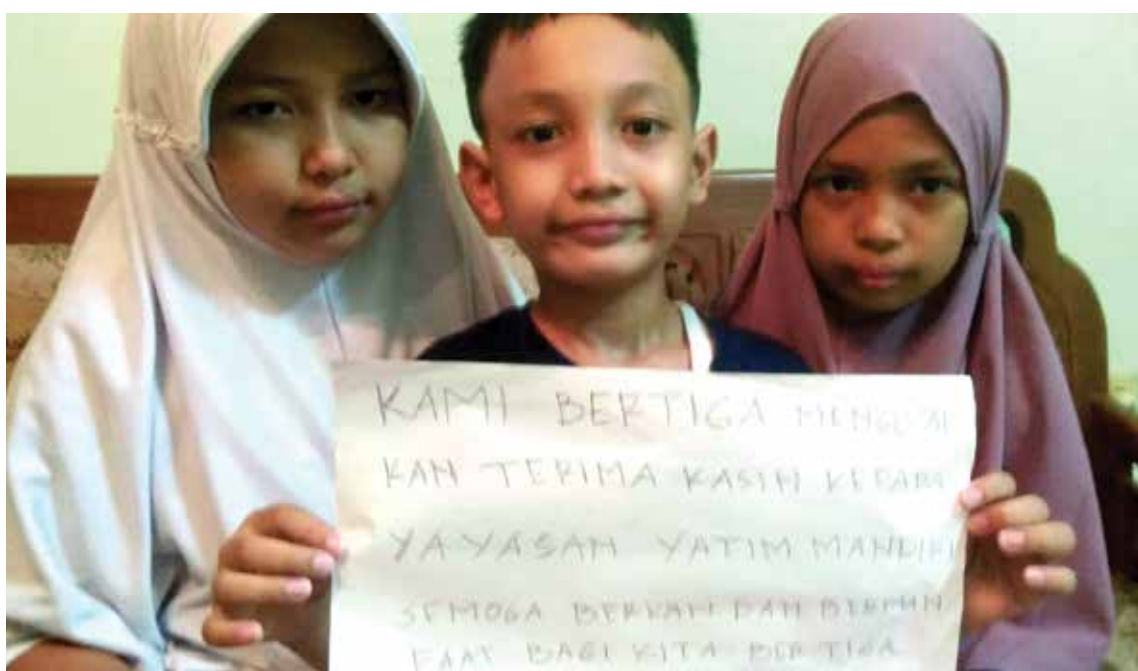 KAMI BERTIGA MENGUCAP
KAN TERIMA KASIH KEPADA
YAYASAN YATIM MANDIRI
SEMOGA BERKAH DAN BERMAN
FAAT BAGI KITA BERTIGA